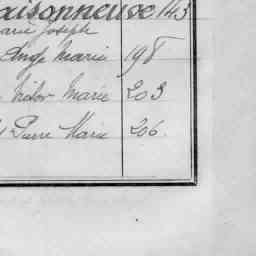 aisonneuve 143
arie Joseph
Ange Marie 198
Victor Marie 203
Pierre Marie 206